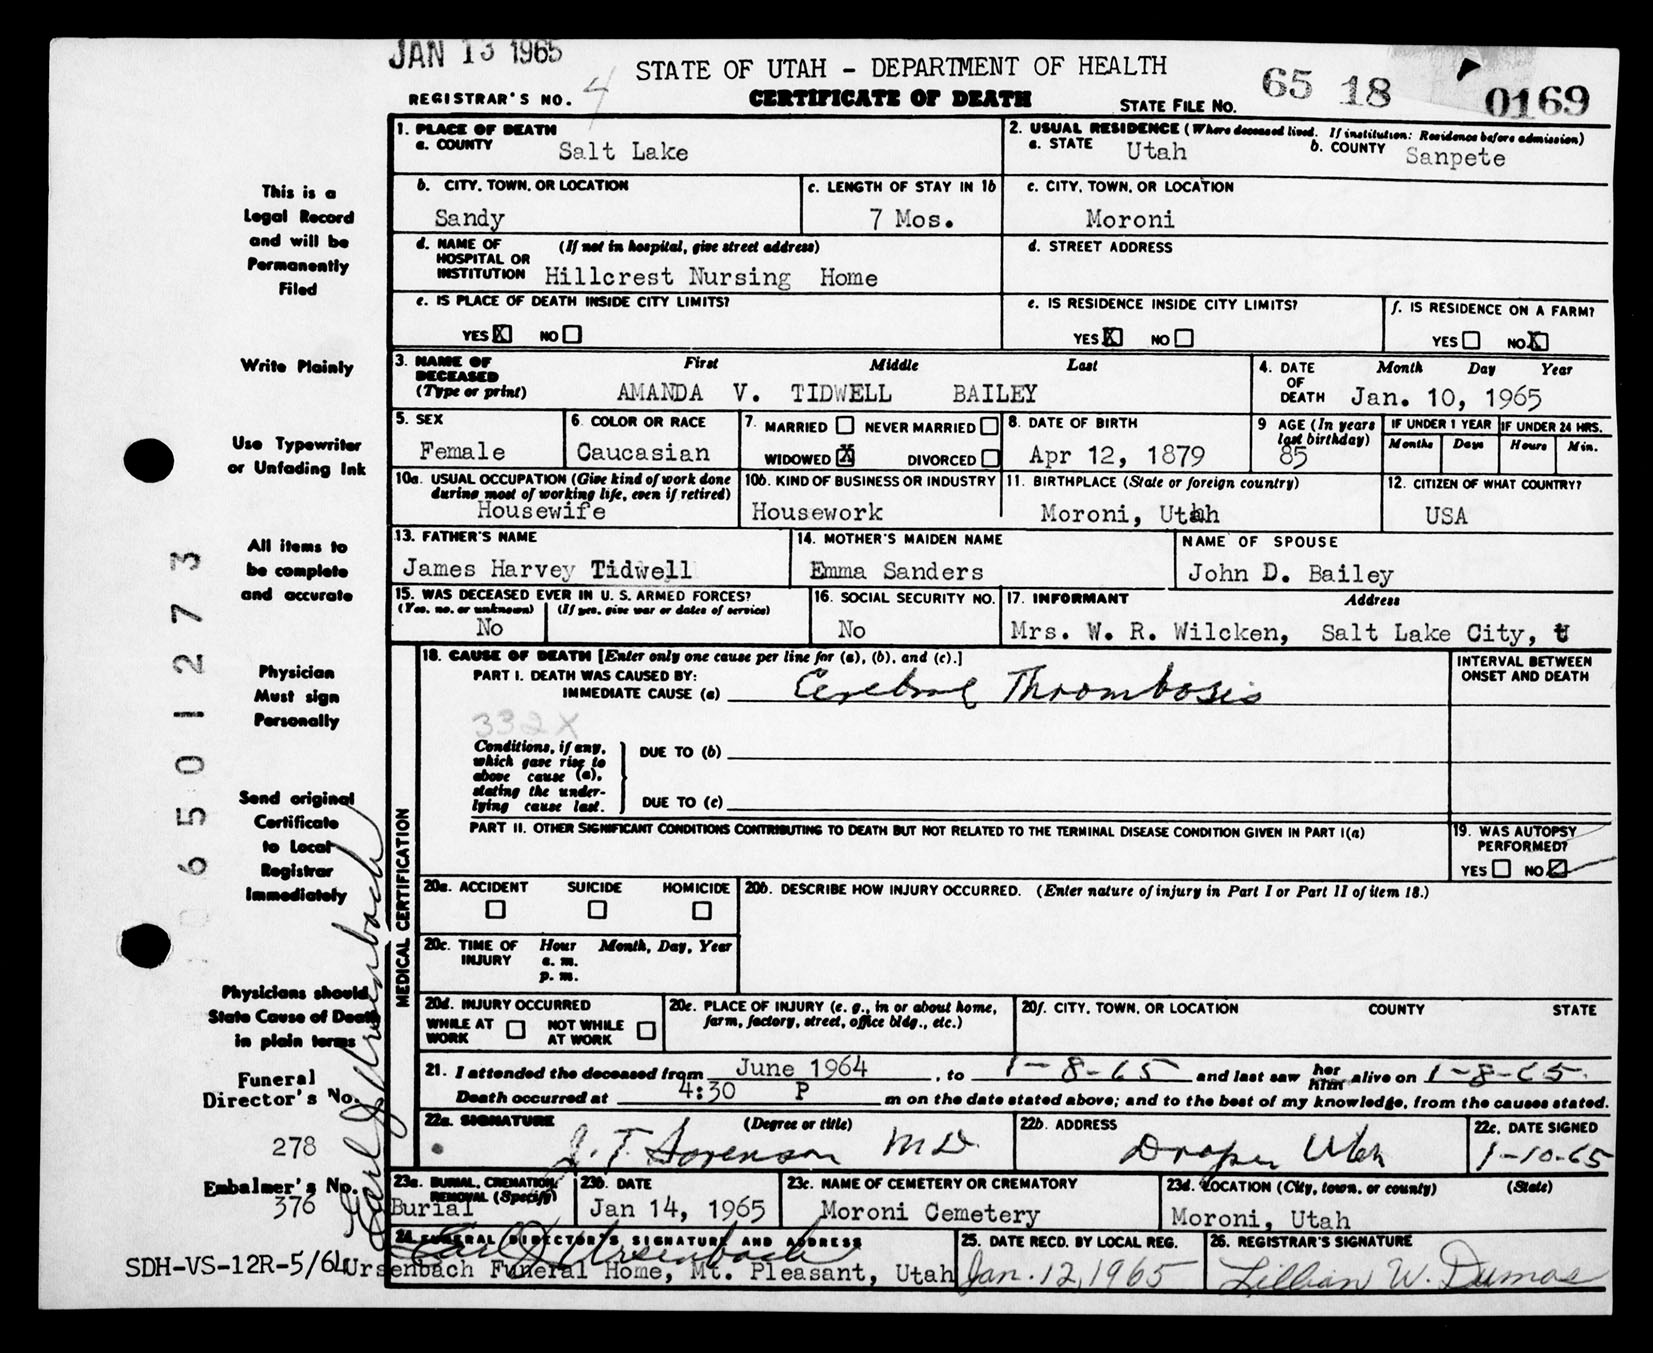 JAN 13 1965
STATE OF UTAH - DEPARTMENT OF HEALTH
65 18 0169
REGISTRAR'S NO. 4
CERTIFICATE OF DEATH
STATE FILE NO.
1. PLACE OF DEATH
a. COUNTY Salt Lake
2. USUAL RESIDENCE (Where deceased lived. If institution: Residence before admission)
a. STATE Utah b. COUNTY Sanpete
b. CITY, TOWN, OR LOCATION
Sandy
c. LENGTH OF STAY IN 1b
7 Mos.
c. CITY, TOWN, OR LOCATION
Moroni
d. NAME OF HOSPITAL OR INSTITUTION (If not in hospital, give street address)
Hillcrest Nursing Home
d. STREET ADDRESS
e. IS PLACE OF DEATH INSIDE CITY LIMITS?
YES X NO
e. IS RESIDENCE INSIDE CITY LIMITS?
YES X NO
f. IS RESIDENCE ON A FARM?
YES NO X
3. NAME OF DECEASED (Type or print)
First Middle Last
AMANDA V. TIDWELL BAILEY
4. DATE OF DEATH Month Day Year
Jan. 10, 1965
5. SEX
Female
6. COLOR OR RACE
Caucasian
7. MARRIED NEVER MARRIED
WIDOWED X DIVORCED
8. DATE OF BIRTH
Apr 12, 1879
9 AGE (In years last birthday)
85
IF UNDER 1 YEAR
Months Days
IF UNDER 24 HRS.
Hours Min.
10a. USUAL OCCUPATION (Give kind of work done during most of working life, even if retired)
Housewife
10b. KIND OF BUSINESS OR INDUSTRY
Housework
11. BIRTHPLACE (State or foreign country)
Moroni, Utah
12. CITIZEN OF WHAT COUNTRY?
USA
13. FATHER'S NAME
James Harvey Tidwell
14. MOTHER'S MAIDEN NAME
Emma Sanders
NAME OF SPOUSE
John D. Bailey
15. WAS DECEASED EVER IN U. S. ARMED FORCES?
(Yes, no, or unknown) (If yes, give war or dates of service)
No
16. SOCIAL SECURITY NO.
No
17. INFORMANT Address
Mrs. W. R. Wilcken, Salt Lake City, U
MEDICAL CERTIFICATION
18. CAUSE OF DEATH [Enter only one cause per line for (a), (b), and (c).]
PART I. DEATH WAS CAUSED BY:
IMMEDIATE CAUSE (a) Cerebral Thrombosis
INTERVAL BETWEEN ONSET AND DEATH
332X
Conditions, if any, which gave rise to above cause (a), stating the underlying cause last.
DUE TO (b)
DUE TO (c)
PART II. OTHER SIGNIFICANT CONDITIONS CONTRIBUTING TO DEATH BUT NOT RELATED TO THE TERMINAL DISEASE CONDITION GIVEN IN PART I(a)
19. WAS AUTOPSY PERFORMED?
YES NO
20a. ACCIDENT SUICIDE HOMICIDE
20b. DESCRIBE HOW INJURY OCCURRED. (Enter nature of injury in Part I or Part II of item 18.)
20c. TIME OF INJURY Hour Month, Day, Year
a. m.
p. m.
20d. INJURY OCCURRED
WHILE AT WORK NOT WHILE AT WORK
20e. PLACE OF INJURY (e. g., in or about home, farm, factory, street, office bldg., etc.)
20f. CITY, TOWN, OR LOCATION COUNTY STATE
21. I attended the deceased from June 1964, to 1-8-65 and last saw her him alive on 1-8-65.
Death occurred at 4:30 P m on the date stated above; and to the best of my knowledge, from the causes stated.
22a. SIGNATURE (Degree or title)
J. T. Sorenson MD.
22b. ADDRESS
Draper Utah
22c. DATE SIGNED
1-10-65
23a. BURIAL, CREMATION, REMOVAL (Specify)
Burial
23b. DATE
Jan 14, 1965
23c. NAME OF CEMETERY OR CREMATORY
Moroni Cemetery
23d. LOCATION (City, town, or county) (State)
Moroni, Utah
24. FUNERAL DIRECTOR'S SIGNATURE AND ADDRESS
Earl J Ursenbach
Ursenbach Funeral Home, Mt. Pleasant, Utah
25. DATE RECD. BY LOCAL REG.
Jan. 12, 1965
26. REGISTRAR'S SIGNATURE
Lillian W. Dumas
This is a
Legal Record
and will be
Permanently
Filed
Write Plainly
Use Typewriter
or Unfading Ink
All items to
be complete
and accurate
Physician
Must sign
Personally
Send original
Certificate
to Local
Registrar
Immediately
Physicians should
State Cause of Death
in plain terms
Funeral
Director's No.
278
Embalmer's No.
376
Earl J Ursenbach
SDH-VS-12R-5/64
6501273